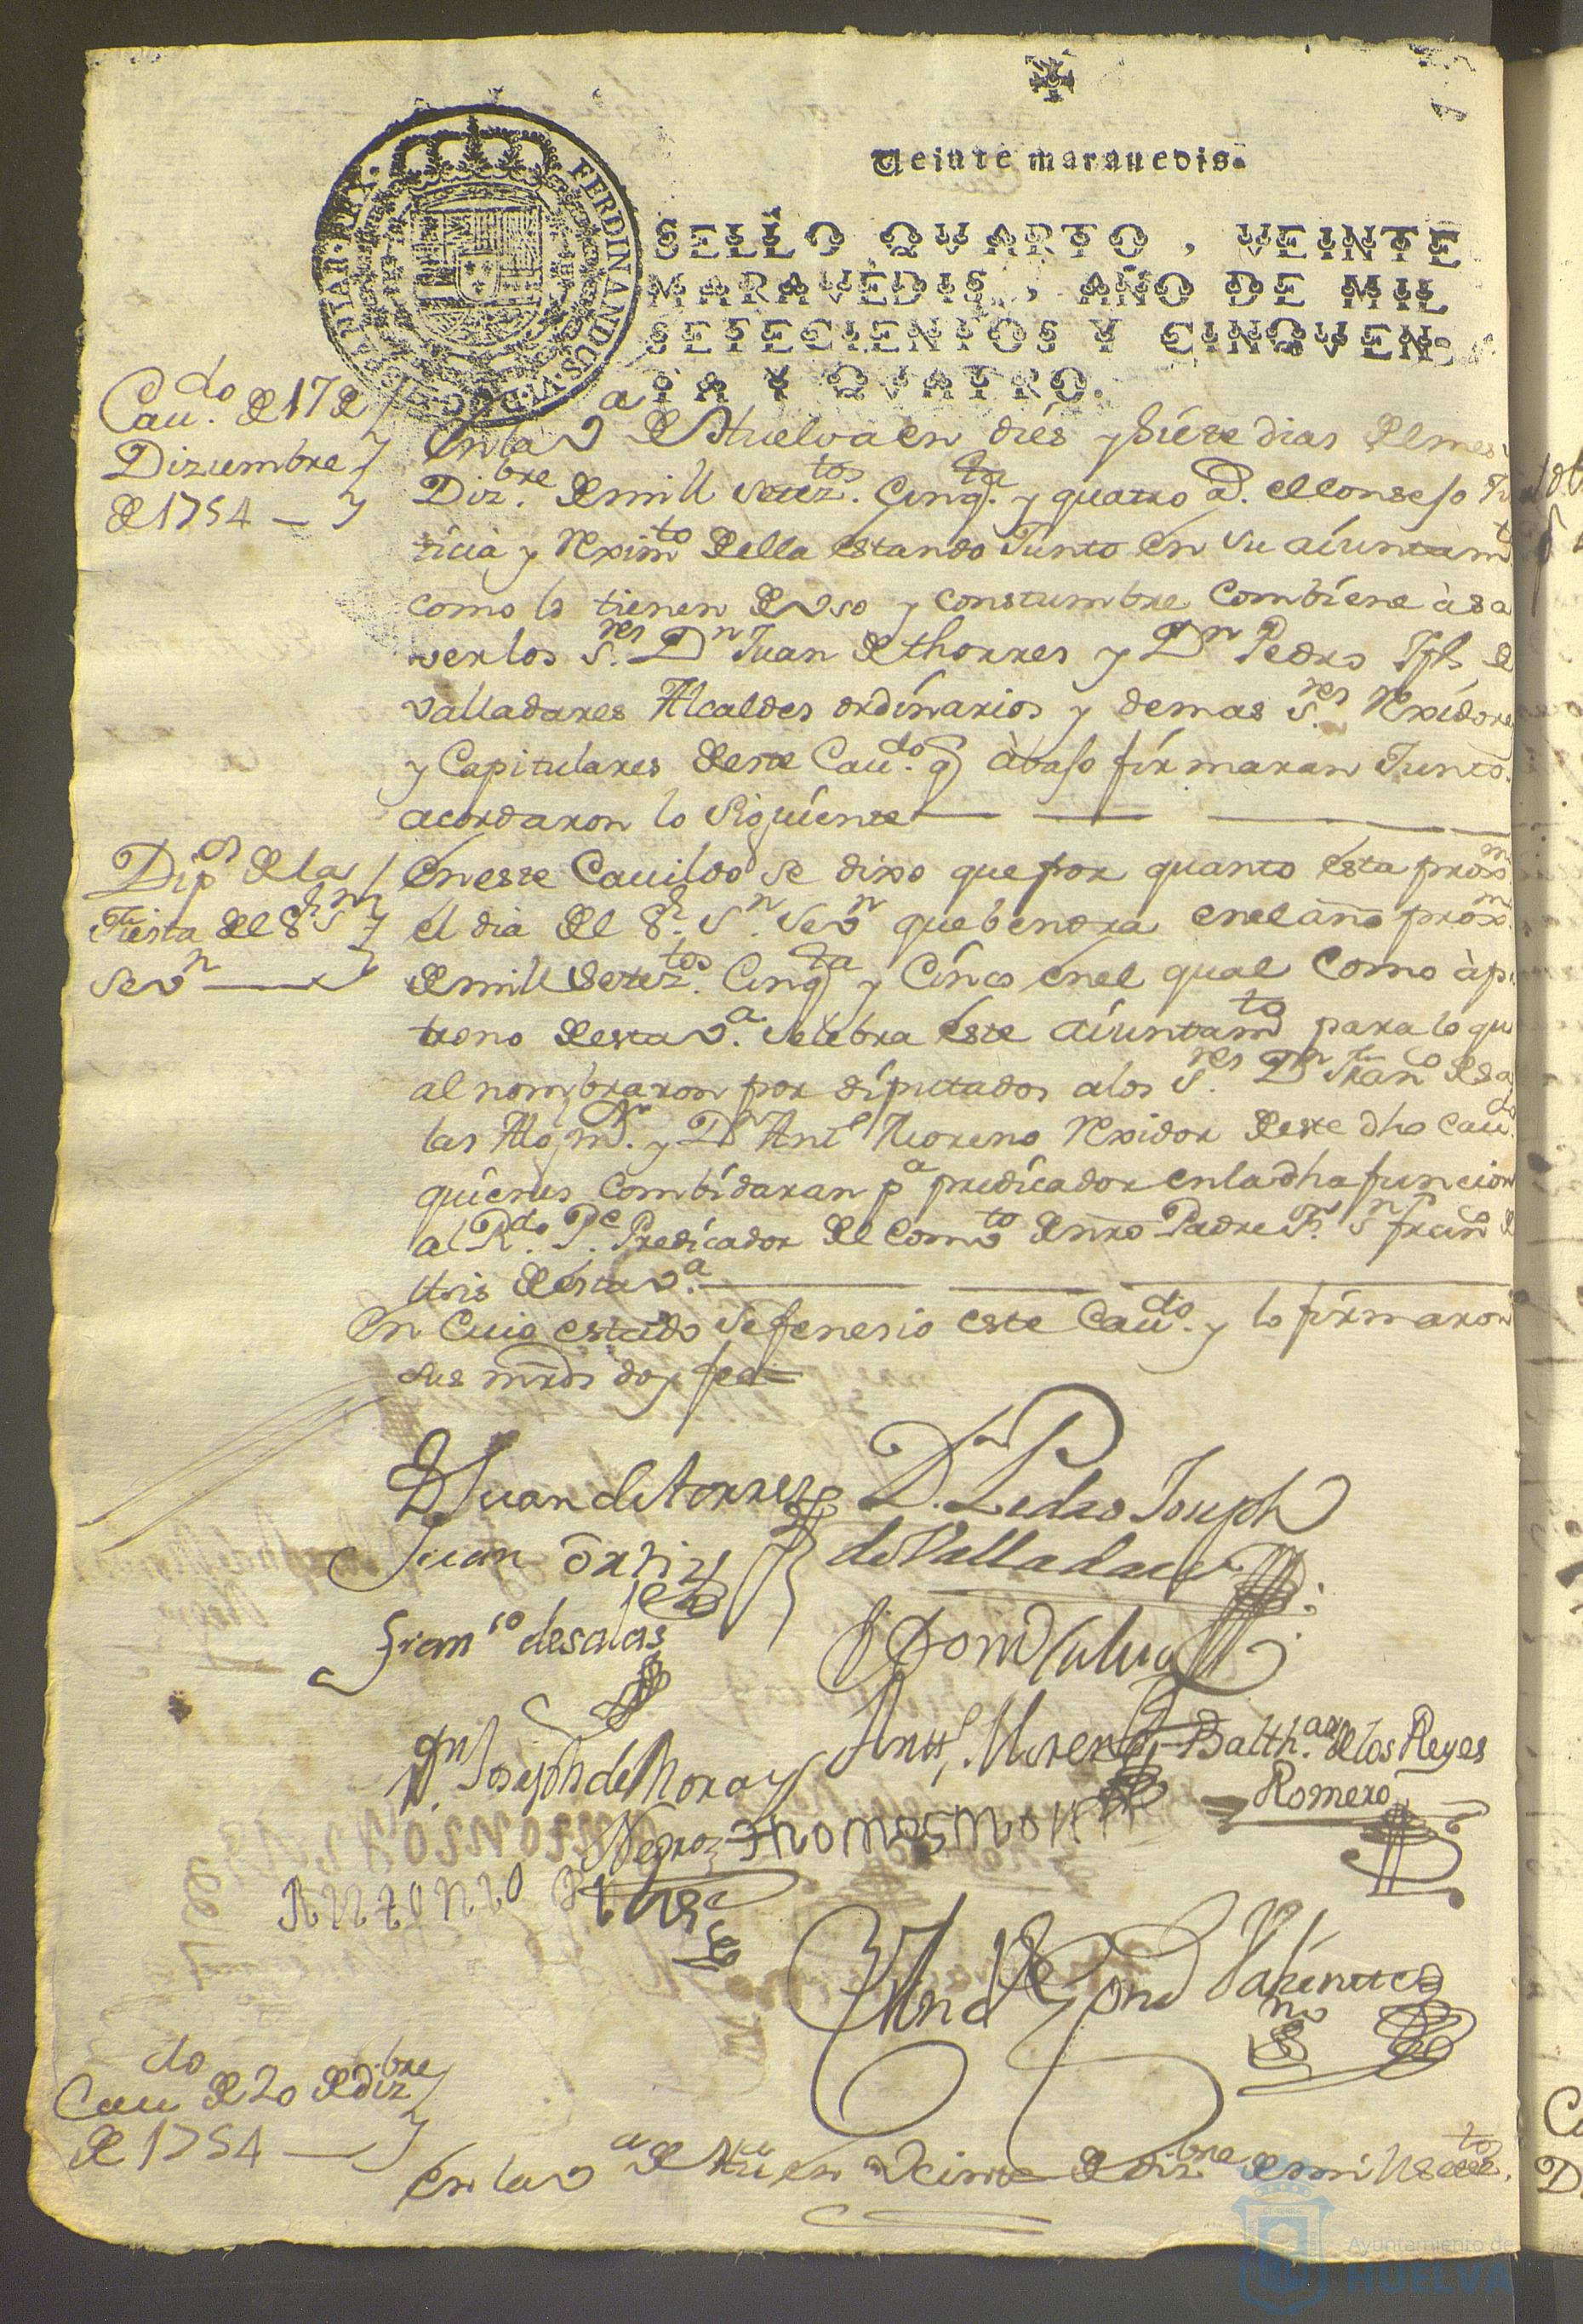 Veinte marauedis.
SELLO QVARTO, VEINTE
MARAVEDIS, AÑO DE MIL
SETECIENTOS Y CINQVEN-
TA Y QVATRO.
FERDINANDUS. VI. D. G.
HISPANIAR. REX.
Cau.do de 17 de
Diziembre
de 1754
En la V.a de Huelva en diés y siéte dias del mes
Diz.bre de mill setez.tos Cinq.ta y quatro a.s el Consejo Ju
ticia y Rexim.to della estando Junto en su aiuntam.to
como lo tienen de Vso y constumbre combiene à sa
ver los S.res D.n Juan de thorres y D.n Pedro Jph de
Valladares Alcaldes ordinarios y demas S.res Rexidores
y Capitulares deste Cau.do q abajo firmaran Juntos
acordaron lo siguiente
Dip.os de la
Fiesta del S.r S.n
Sev.n
En este Cauildo se dixo que por quanto esta prox.mo
el dia del S.r S.n Sev.n que bendra en el año prox.mo
de mill Setez.tos Cinq.ta y Cinco en el qual como à pa
trono desta V.a selebra este aiuntam.to para lo qu
al nombraron por diputados a los S.res D.n Fran.co de sa
las Alg.l m.r y D.n Ant.o Moreno Rexidor deste dho Cau.do
quienes combidaran p.a predicador en la dha funcion
al R.do P.e Predicador del Comv.to de nro Padre S.r S.n fran.co de
Asis de esta V.a
En cuio estado se fenesio este Cau.do y lo firmaron
sus mrds doy fee
D Juan de torres
D.n Pedro Joseph
de Valladares
Juan Ortiz
Fran.co de salas
Joseph de Mora y
Negro
Antt.o Moreno
Balth.ar de los Reyes
Romero
Thomas
Antonio
Cau.do de 20 de diz.bre
de 1754
En la V.a de Hu.a en Veinte de diz.bre de mill setez.tos
Ayuntamiento de
HUELVA